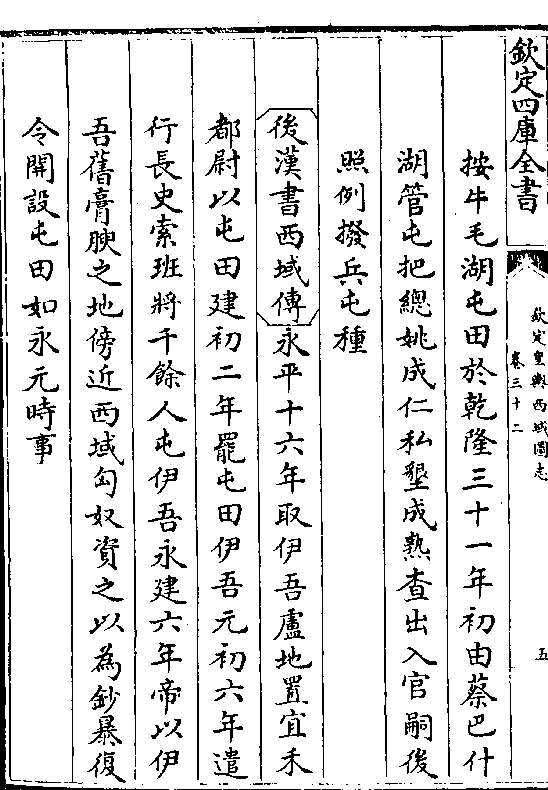 欽定四庫全書
欽定皇輿西域圖志
卷三十二
五
按牛毛湖屯田於乾隆三十一年初由蔡巴什
湖管屯把總姚成仁私墾成熟查出入官嗣後
照例撥兵屯種
後漢書西域傳永平十六年取伊吾盧地置宜禾
都尉以屯田建初二年罷屯田伊吾元初六年遣
行長史索班將千餘人屯伊吾永建六年帝以伊
吾舊膏腴之地傍近西域匈奴資之以為鈔暴復
令開設屯田如永元時事